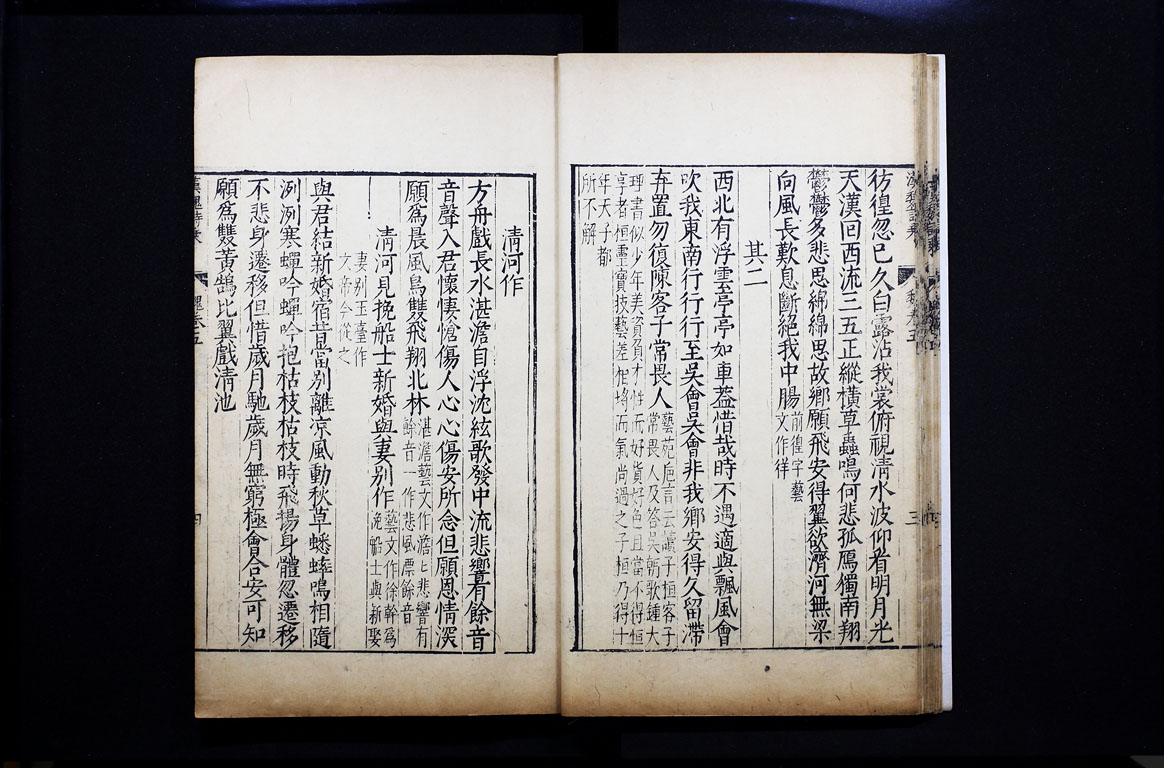 彷徨忽已久白露沾我裳俯視清水波仰看明月光
天漢回西流三五正縱橫草蟲鳴何悲孤鴈獨南翔
鬱鬱多悲思綿綿思故鄉願飛安得翼欲濟河無梁
向風長歎息斷絕我中腸
前徨字藝
文作徉
其二
西北有浮雲亭亭如車蓋惜哉時不遇適與飄風會
吹我東南行行行至吳會吳會非我鄉安得久留滯
弃置勿復陳客子常畏人
藝苑卮言云讀子桓客子
常畏人及答吳朝歌鍾大
理書似少年美資負才性而好貨好色且當不得恒
享者桓靈寶技藝差相埒而氣尚過之子桓乃得十
年天子都
所不解
清河作
方舟戲長水湛澹自浮沈絃歌發中流悲響有餘音
音聲入君懷悽愴傷人心心傷安所念但願恩情深
願為晨風鳥雙飛翔北林
湛澹藝文作澹上悲響有
餘音一作悲風漂餘音
清河見挽船士新婚與妻別作
藝文作徐幹為
挽船士與新娶
妻別玉臺作
文帝今從之
與君結新婚宿昔當別離涼風動秋草蟋蟀鳴相隨
洌洌寒蟬吟蟬吟抱枯枝枯枝時飛揚身體忽遷移
不悲身遷移但惜歲月馳歲月無窮極會合安可知
願為雙黃鵠比翼戲清池